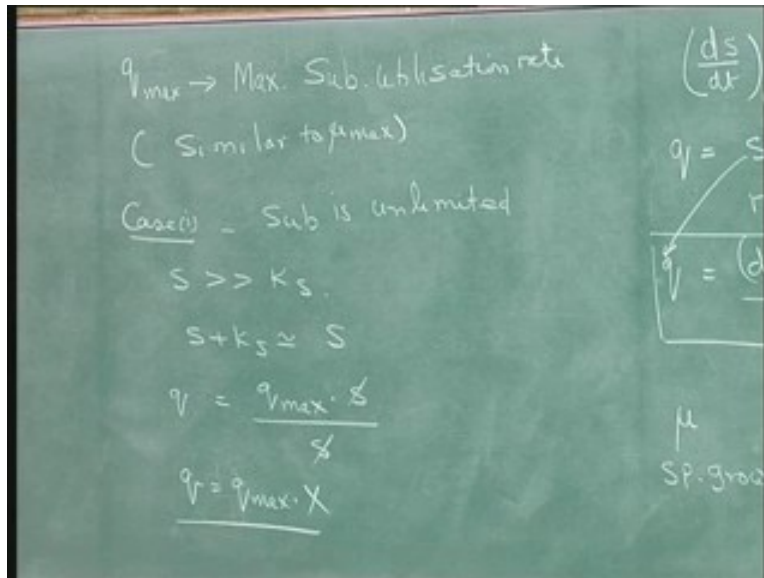 q max → Max. Sub. utilisation rate
( Similar to μmax)
Case(i) - Sub is unlimited
S >> Ks.
S + Ks ≃ S
q = qmax. S
S
q = qmax. X
(ds
dt)
q = S
r
q = (d
μ
SP. grow